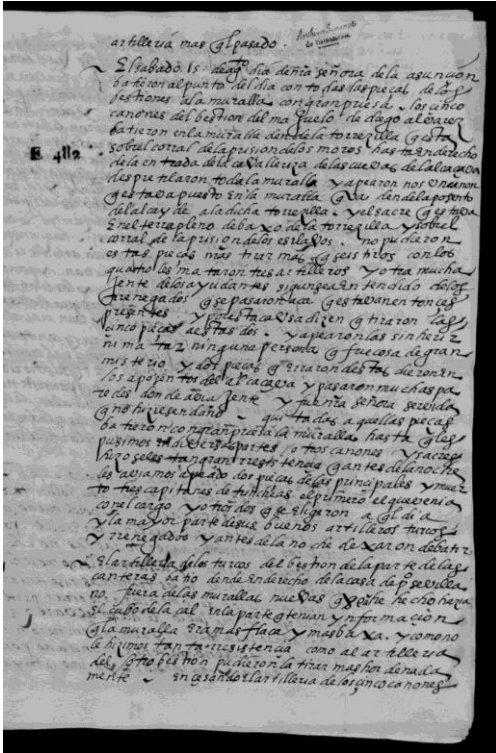 artilleria mas q̃l pasado.
Archivo General de Simancas
El sabado 15 de agto dia de ñra señora de la asunçion
batieron al punto del dia con todas las pieças de los
bestiones a la muralla con gran priesa. los cinco
canones del bestion del maçuelo de diego alvarez
batieron en la muralla dende la torrezilla q̃ esta
sobrel corral de la prision de los moros hasta en derecho
de la entrada de la cavalleriza de las cuevas de la alcaçava
E 482
despedaçaron toda la muralla y apearon nos un canon
q̃ estava puesto en la muralla q̃ va dende la posento
del alcayde a la dicha torrezilla. y el sacre q̃ estava
en el terrapleno debaxo de la torrezilla y sobrel
corral de la prision de los esclavos. no pudieron
estas pieças mas tirar mas q̃ seis tiros con los
quales les mataron tres artilleros y otra mucha
jente de los ayudantes sigun sea entendido de los
rrenegados q̃ se pasaron aca q̃ estavan entonces
presentes y por esta causa dizen q̃ tiraron las
cinco pieças a estas dos. y apearon las sin herir
ni matar ninguna persona q̃ fue cosa de gran
misterio y dos pieças q̃ erraron destas dieron en
los aposentos del alcaçava y pasaron muchas pa
redes donde avia jente y fue ñra señora servida
q̃ no hiziesen daño. quitadas aquellas pieças
batieron con gran priesa la muralla hasta q̃ les
pusimos en diversas partes otros canones y sacres
hizo seles tan gran rresistencia q̃ antes de la noche
les aviamos apeado dos pieças de las principales y muer
to tres capitanes de trincheas el primero el que venia
con el cargo y otros dos q̃ se eligeron aql dia
y la mayor parte de sus buenos artilleros turcos
y rrenegados y antes de la noche dexaron de batir
El artilleria de los turcos del bestion de la parte de las
canteras batio dende en derecho de la casa de po sevilla
no. fuera de las murallas nuevas q̃ yo he hecho hazia
el cubo de la cal en la parte q̃ tenian ynformacion
q̃ la muralla era mas flaca y mas baxa. y como no
le hizimos tanta rresistencia como al artilleria
del otro bestion pudieron la tirar mas hordenada
mente. en cesando el artilleria de los cinco canones